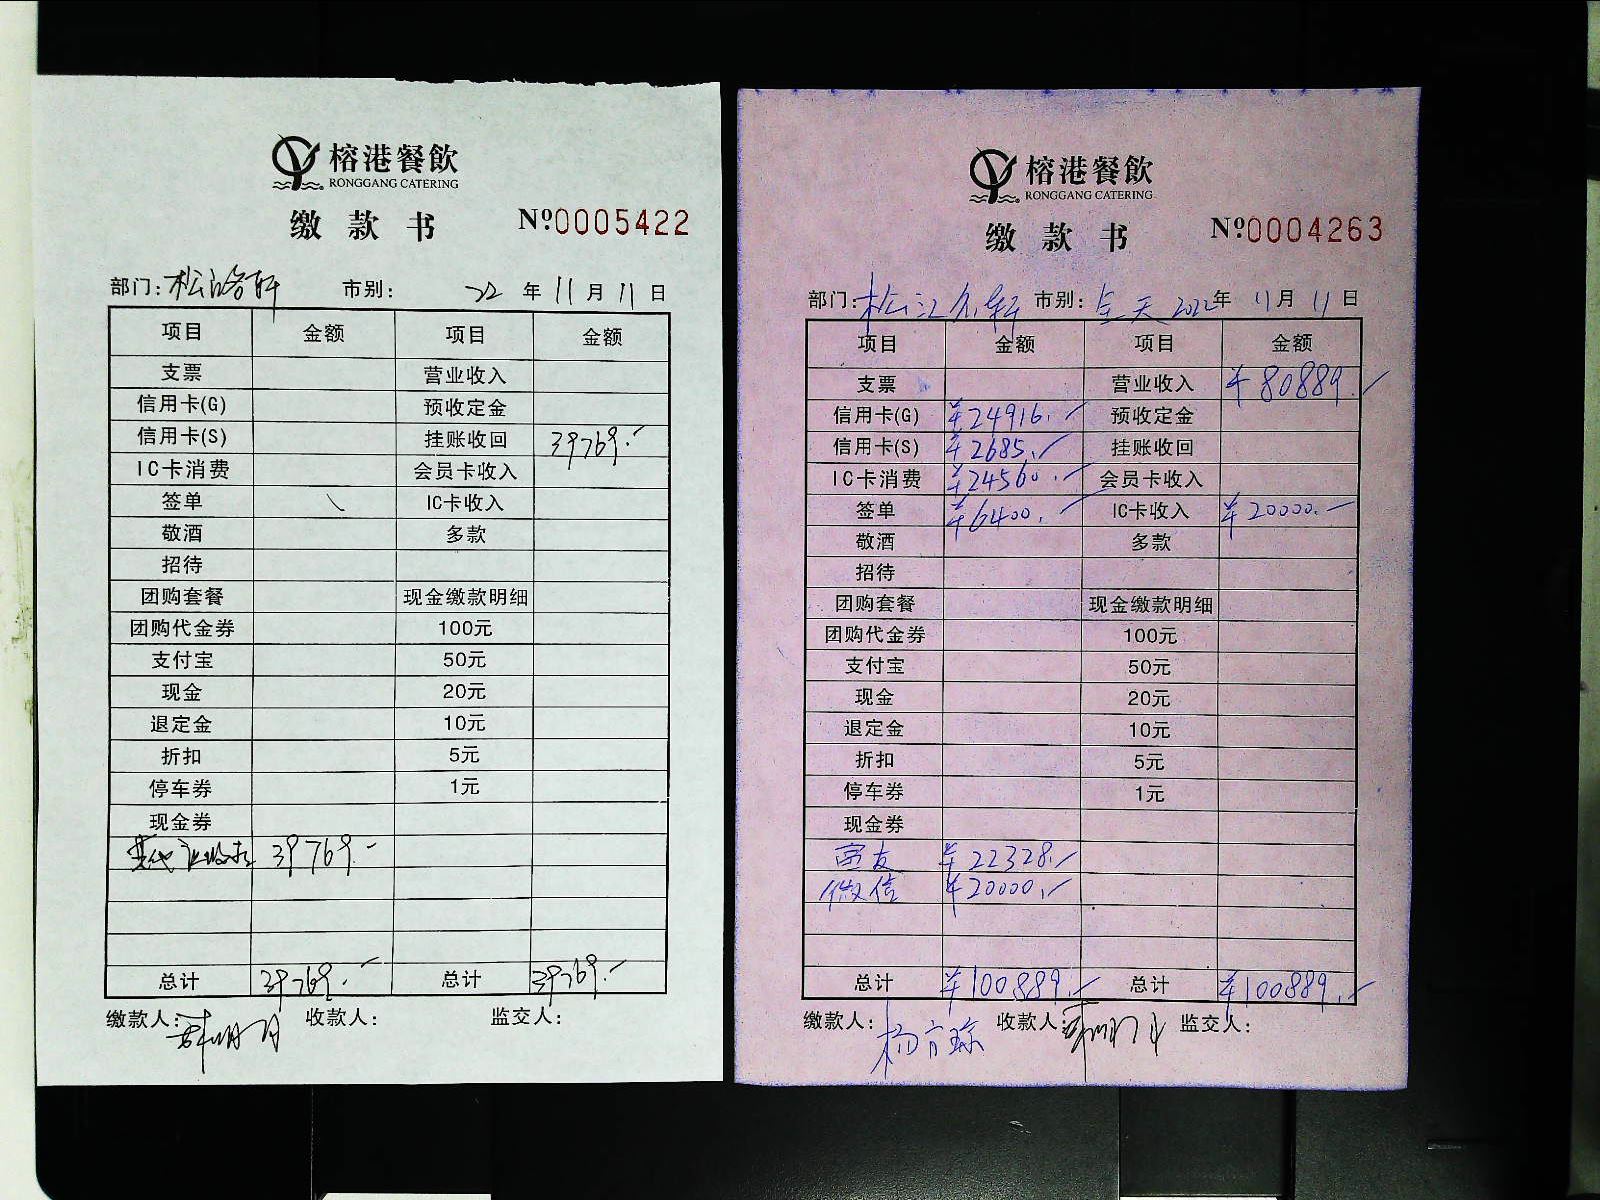 榕港餐飲
RONGGANG CATERING
缴款书 Nº0005422
部门: 市别: 22年11月11日
项目 金额 项目 金额
支票 营业收入
信用卡(G) 预收定金
信用卡(S) 挂账收回 39769.-
IC卡消费 会员卡收入
签单 IC卡收入
敬酒 多款
招待
团购套餐 现金缴款明细
团购代金券 100元
支付宝 50元
现金 20元
退定金 10元
折扣 5元
停车券 1元
现金券
39769.-
总计 39769.- 总计 39769.-
缴款人: 收款人: 监交人:
榕港餐飲
RONGGANG CATERING
缴款书 Nº0004263
部门: 市别: 全天 2022年11月11日
项目 金额 项目 金额
支票 营业收入 ¥80889.-
信用卡(G) ¥24916.- 预收定金
信用卡(S) ¥2685.- 挂账收回
IC卡消费 ¥24560.- 会员卡收入
签单 ¥6400.- IC卡收入 ¥20000.-
敬酒 多款
招待
团购套餐 现金缴款明细
团购代金券 100元
支付宝 50元
现金 20元
退定金 10元
折扣 5元
停车券 1元
现金券
富友 ¥22328.-
微信 ¥20000.-
总计 ¥100889.- 总计 ¥100889.-
缴款人: 收款人: 监交人: